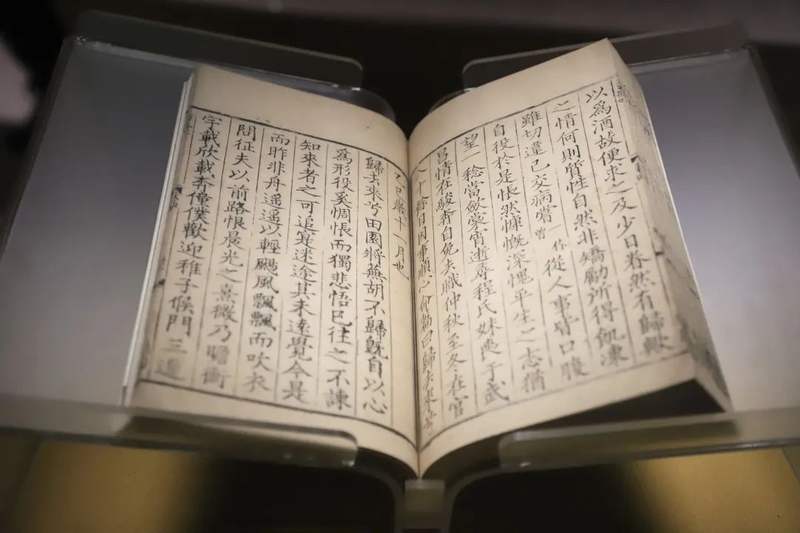 以為酒故便求之及少日眷然有歸歟
之情何則質性自然非矯勵所得飢凍
雖切違已交病甞作曾從人事皆口腹
自役於是悵然慷慨深愧平生之志猶
望一稔當斂裳宵逝尋程氏妹喪于武
昌情在駿奔自免去職仲秋至冬在官
八十餘日因事順心命篇曰歸去來兮
乙巳歲十一月也
歸去來兮田園將蕪胡不歸旣自以心
為形役奚惆悵而獨悲悟已往之不諫
知來者之可追寔迷途其未遠覺今是
而昨非舟遥遥以輕颺風飄飄而吹衣
問征夫以前路恨晨光之熹微乃瞻衡
宇載欣載奔僮僕歡迎稚子候門三逕